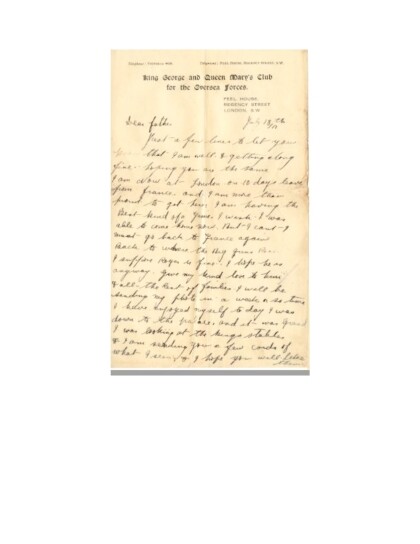 King George and Queen Mary's Club
for the Oversea Forces.
PEEL HOUSE,
REGENCY STREET
LONDON S.W.
Dear father
Just a few lines to let you
that I am well & getting along
fine. hoping you are the same
I am now at London on 10 days leave
from france. and I am more than
to get here. I am having the
Best kind of a time. I wish I was
able to come home now. But I can't I
must go back to france again
Back to where the Big guns
I suppose is fine. I hope he is
anyway. give my kind love to him
& all the Rest of families I will be
sending my photo in a week or so time
I have enjoyed myself to day I was
down to the and it was grand
I was looking at the kings stables
& I am sending you a few cards of
what I seen I hope you will